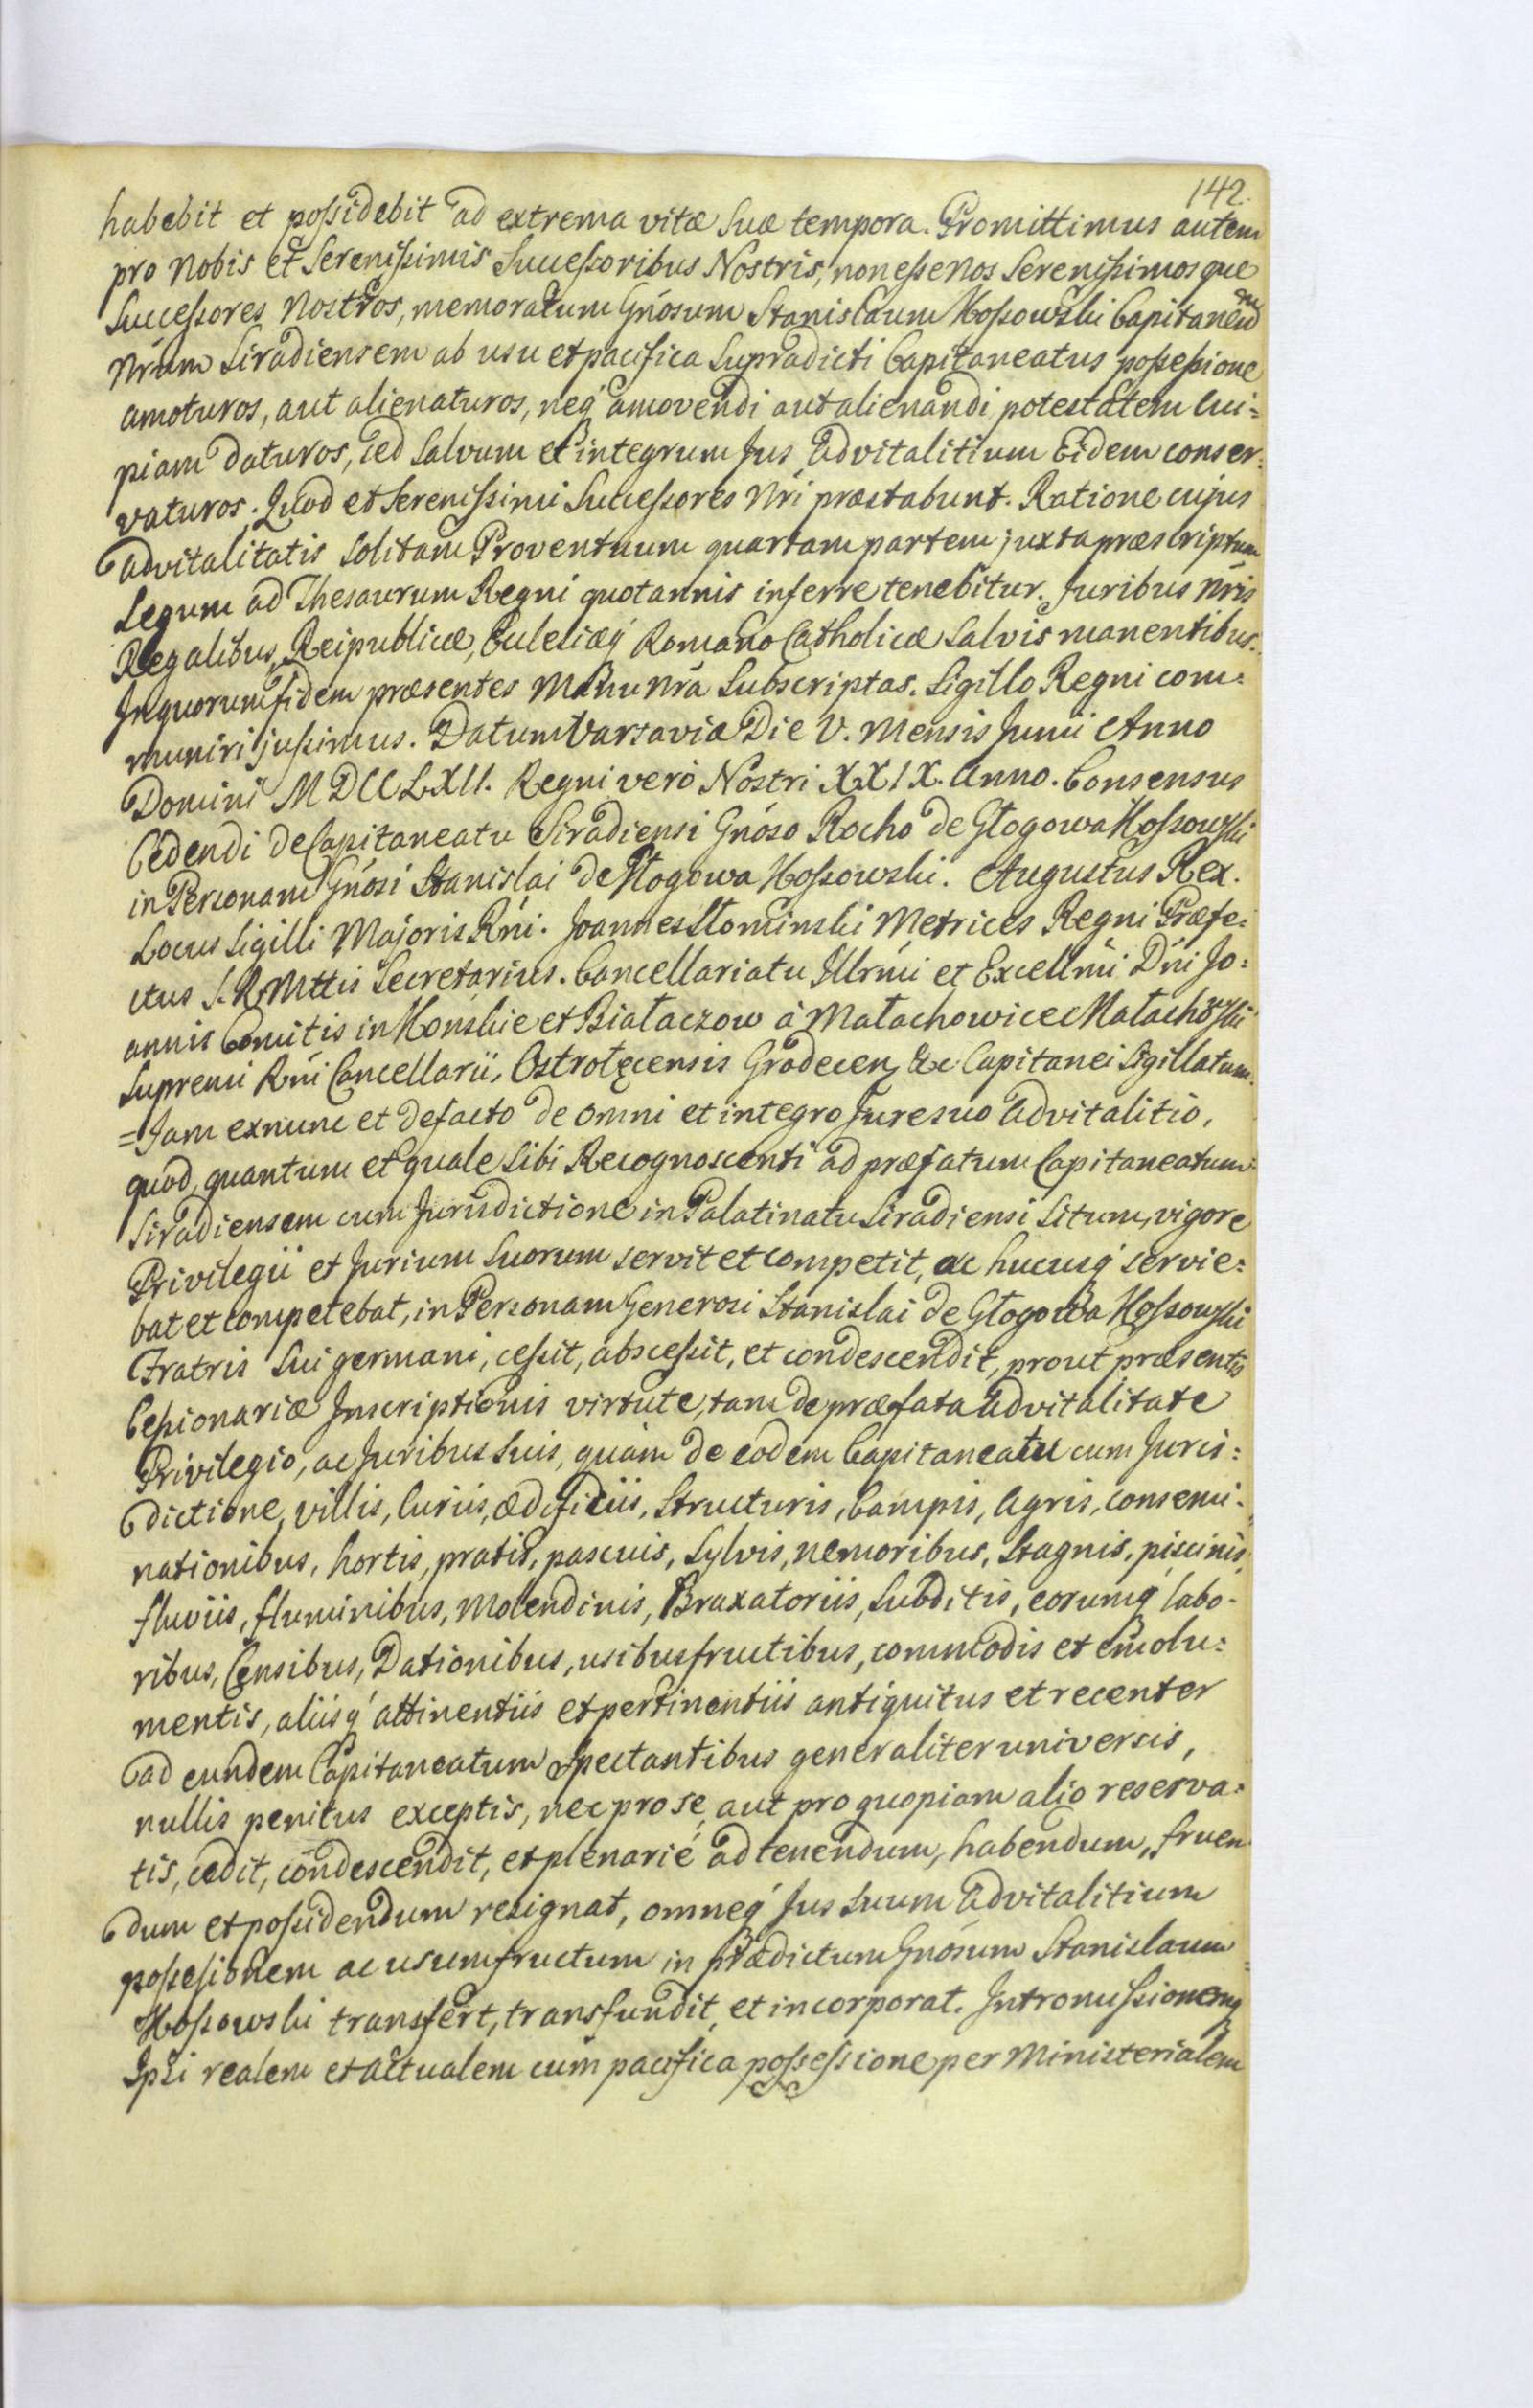 142.
habebit et possidebit ad extrema vitæ suæ tempora. Promittimus autem
pro Nobis et Serenissimis Successoribus Nostris, non esse Nos Serenissimosque
Successores Nostros, memoratum Gnosum Stanislaum Kossowski Capitaneum
Nrum Siradiensem ab usu et pacifica supradicti Capitaneatus possessione
amoturos, aut alienaturos, neq́ amovendi aut alienandi potestatem cui=
piam daturos, sed salvum et integrum Jus Advitalitium Eidem conser=
vaturos. Quod et Serenissimi Successores Nri præstabunt. Ratione cujus
advitalitatis solitam Proventuum quartam partem juxta præscriptum
Legum ad Thesaurum Regni quotannis inferre tenebitur. Juribus Nris
Regalibus, Reipublicæ, Ecclesiæq́ Romano Catholicæ salvis manentibus.
In quorum fidem præsentes Manu Nra subscriptas. Sigillo Regni com=
muniri jussimus. Datum Varsaviæ Die V. Mensis Junii Anno
Domini MDCCLXII. Regni verò Nostri XXIX. Anno. Consensus
Cedendi de Capitaneatu Siradiensi Gnóso Rocho de Głogowa Kossowski
in Personam Gnósi Stanislai de Głogowa Kossowski. Augustus Rex.
Locus Sigilli Majoris Rni. Joannes Słomiński Metrices Regni Præfe=
ctus S. R. Mttis Secretarius. Cancellariatu Illrmi et Excellmi Dni Jo=
annis Comitis in Konskie et Białaczow à Małachowice Małachowski
Supremi Rni Cancellarii, Ostrołęcensis Gradecen &c Capitanei Sigillatum.
=Jam exnunc et defacto de omni et integro Jure suo Advitalitio,
quod, quantum et quale sibi Recognoscenti ad præfatum Capitaneatum
Siradiensem cum Jurisdictione in Palatinatu Siradiensi situm, vigore
Privilegii et Jurium suorum servit et competit, ac hucusq́ servie=
bat et competebat, in Personam Generosi Stanislai de Głogowa Kossowski
Fratris sui germani, cessit, abscessit, et condescendit, prout præsentis
Cessionariæ Inscriptionis virtute, tam de præfata advitalitate
Privilegio, ac Juribus suis, quàm de eodem Capitaneatu cum Juris=
dictione, villis, curiis, ædificiis, structuris, Campis, Agris, consemi=
nationibus, hortis, pratis, pascuis, sylvis, nemoribus, stagnis, piscinis,
fluviis, fluminibus, Molendinis, Braxatoriis, subditis, eorumq́ labo-
ribus, Censibus, Dationibus, usibusfructibus, commodis et emolu=
mentis, aliisq́ attinentiis et pertinentiis antiquitus et recenter
ad eundem Capitaneatum spectantibus generaliter universis,
nullis penitus exceptis, nec pro se, aut pro quopiam alio reserva=
tis, cedit, condescendit, et plenarié ad tenendum, habendum, fruen
dum et possidendum resignat, omneq́ Jus suum Advitalitium
possesionem ac usumfructum in prædictum Gnosum Stanislaum=
Kossowski transfert, transfundit, et incorporat. Intromissionemq́
Ipsi realem et actualem cum pacifica possessione per Ministerialem